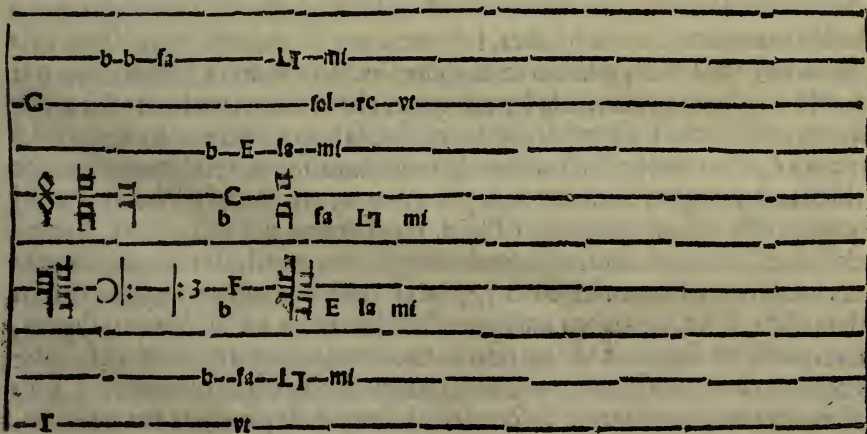 b b fa ♮ mi
G sol re vt
b E la mi
C
b fa ♮ mi
3 F
b E la mi
b fa ♮ mi
Γ vt